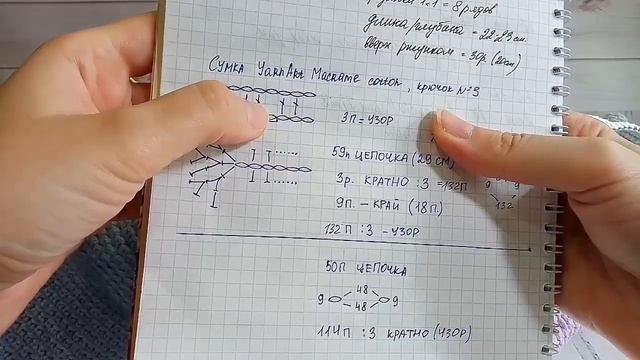 = 8 рядов
длина/глубина = 22-23 см.
вверх рисунком = 30р. (20см)
Сумка YarnArt Macrame cotton, крючок №3
3п = узор
59п цепочка (29 см)
3р. кратно :3 = 132п
9 9
132
9п. – край (18п)
132п :3 – узор
50п цепочка
48
9 9
48
114п :3 кратно (узор)